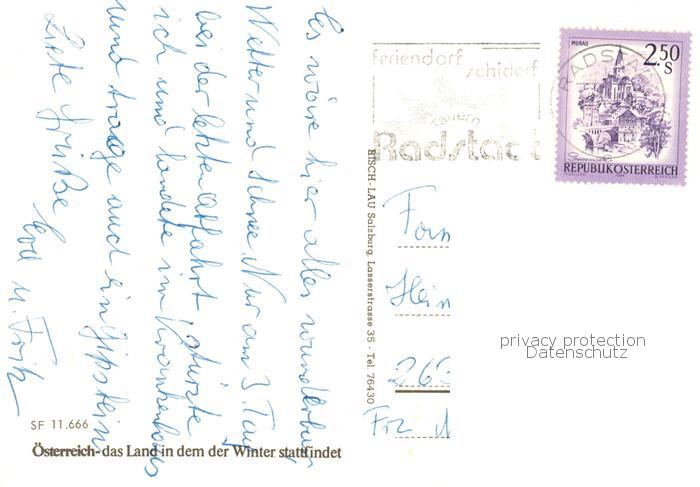 Es wäre hier alles wunderbar
Wetter und Schnee. Nur am 3. Tag
bei der letzten Abfahrt stürzte
ich und landete im Krankenhaus
und trage auch ein Gipsbein
Liebe Grüße Eva u. Fritz
SF 11.666
Österreich - das Land in dem der Winter stattfindet
RISCH-LAU Salzburg, Lasserstrasse 35 - Tel. 76430
feriendorf
schidorf
Tauern
Radstadt
RADSTA
MURAU
2.50
S
REPUBLIK ÖSTERREICH
Fam
Hein
263
privacy protection
Datenschutz